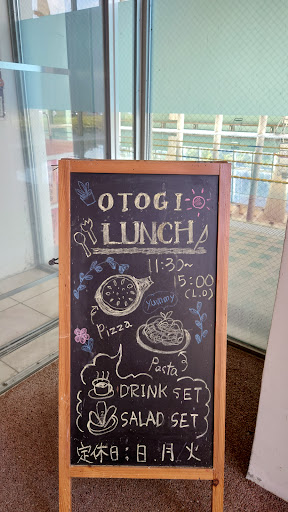 OTOGI
LUNCH
11:30~
15:00
(L.O)
Pizza
yummy
Pasta
DRINK SET
SALAD SET
定休日；日.月.火